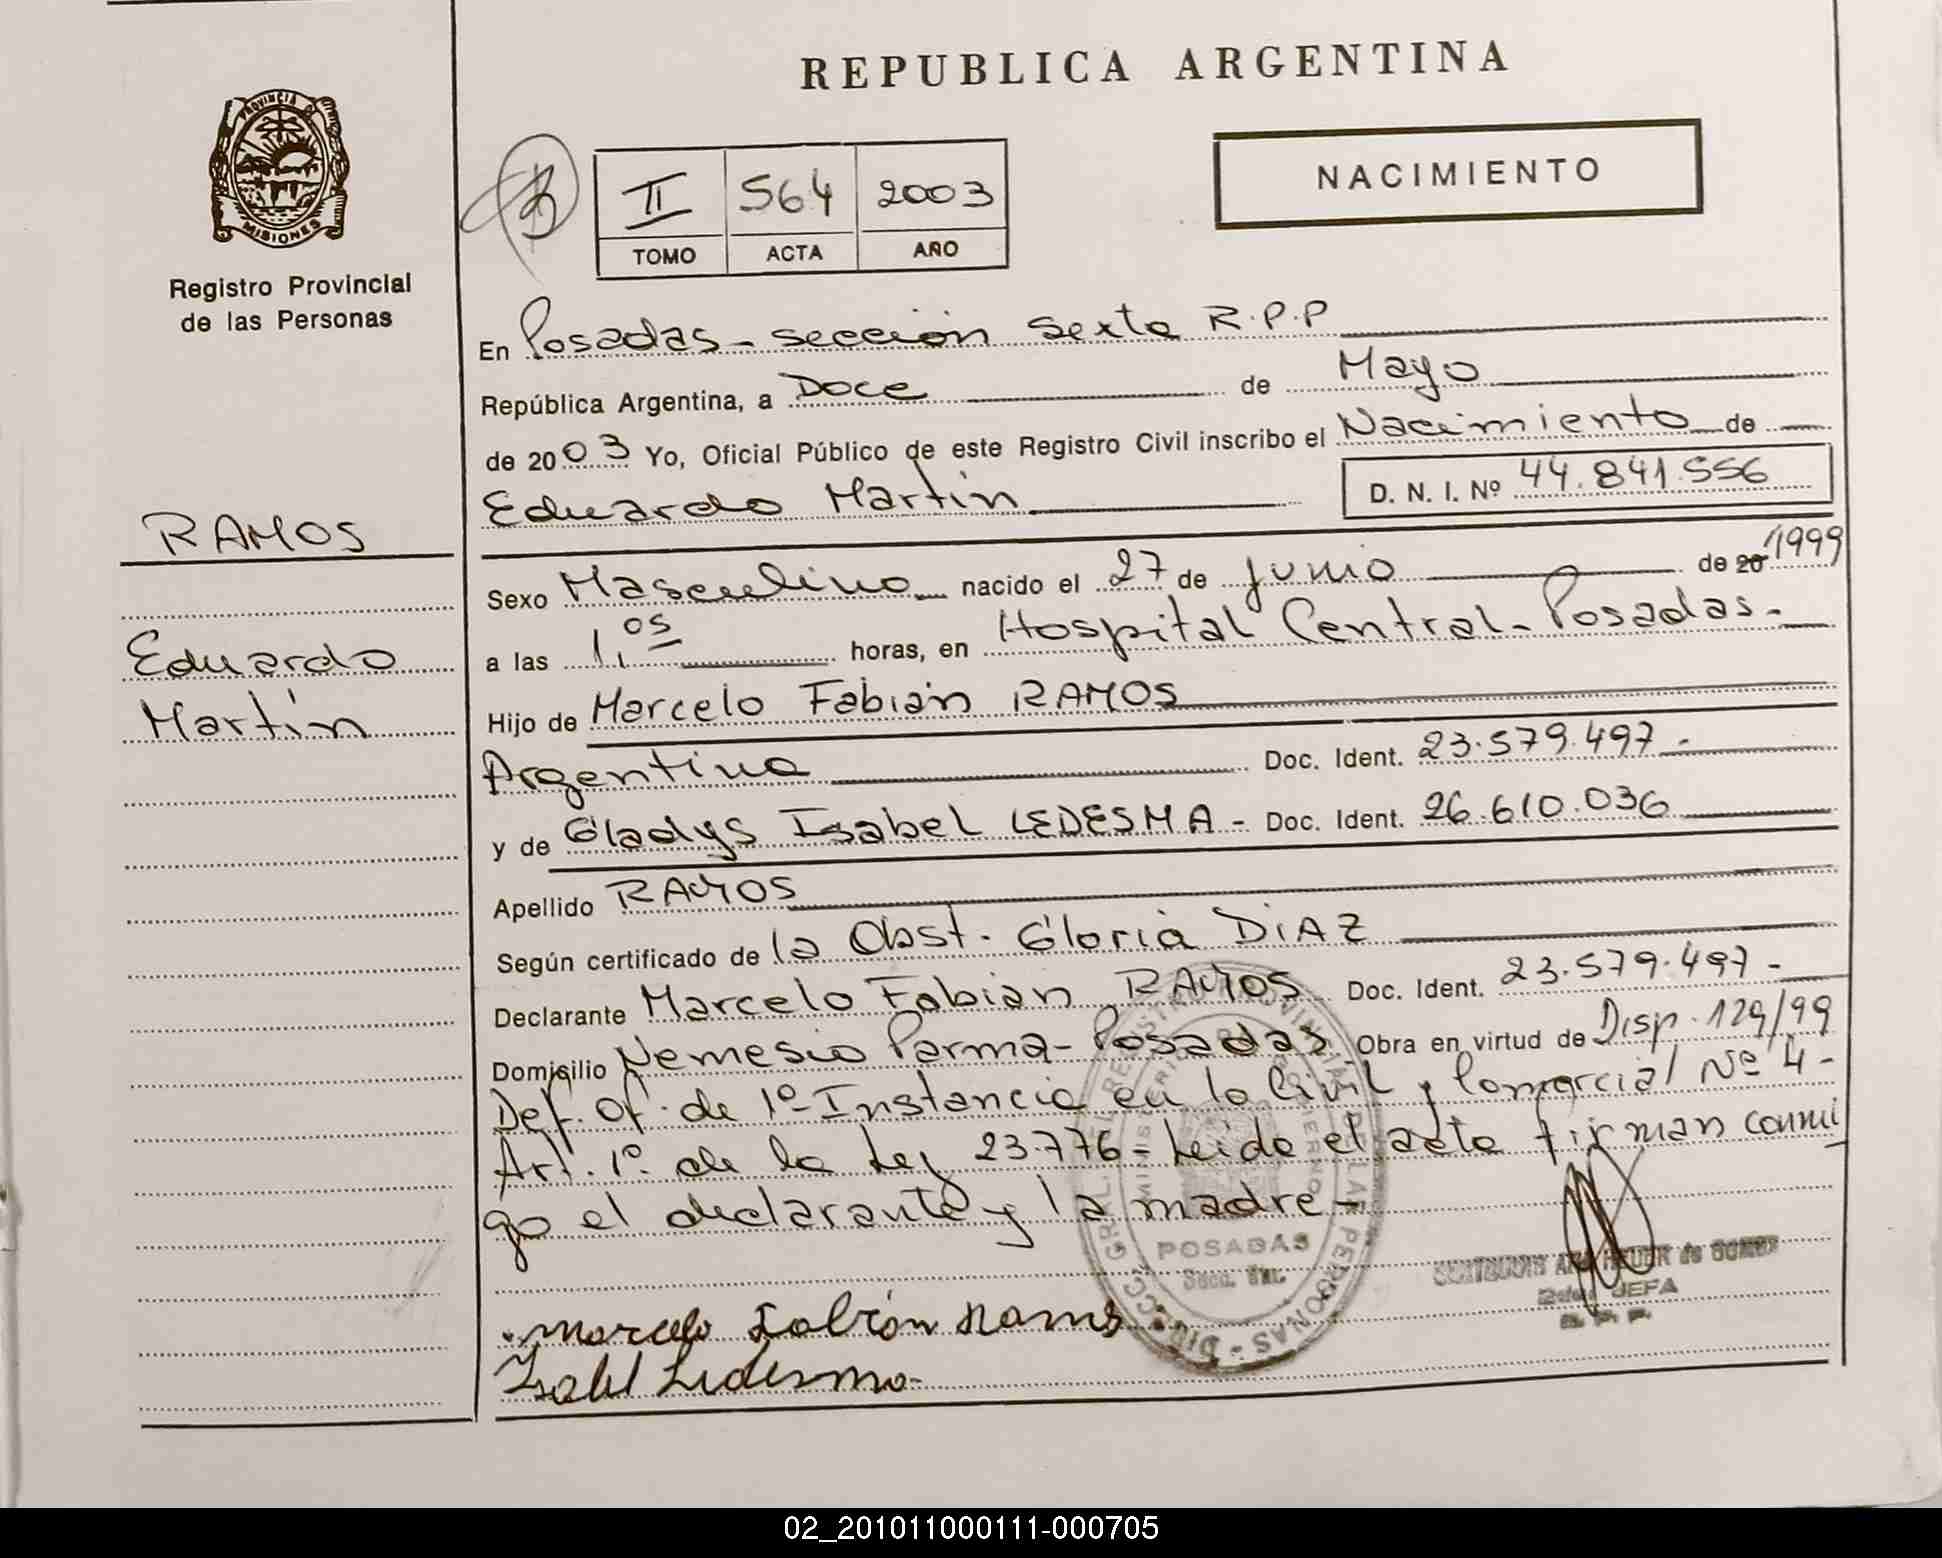 REPUBLICA ARGENTINA
PROVINCIA DE
MISIONES
Registro Provincial
de las Personas
II 564 2003
TOMO ACTA AÑO
NACIMIENTO
En Posadas - sección Sexta R.P.P
República Argentina, a Doce de Mayo
de 2003 Yo, Oficial Público de este Registro Civil inscribo el Nacimiento de
Eduardo Martín D. N. I. Nº 44.841.556
RAMOS
Eduardo
Martín
Sexo Masculino nacido el 27 de Junio de 20 1999
a las 1,05 horas, en Hospital Central - Posadas -
Hijo de Marcelo Fabián RAMOS
Argentino Doc. Ident. 23.579.497 -
y de Gladys Isabel LEDESMA - Doc. Ident. 26.610.036
Apellido RAMOS
Según certificado de la Obst. Gloria DIAZ
Declarante Marcelo Fabian RAMOS Doc. Ident. 23.579.497 -
Domicilio Nemesio Parma - Posadas Obra en virtud de Disp. 129/99
Def. Of. de 1º Instancia en lo Civil y Comercial Nº 4 -
Art. 1º de la Ley 23.776 - Leida el acta firman conmi
go el declarante y la madre -
POSADAS
Secc.
JEFA
Marcelo Fabián Ramos
Isabel Ledesma
02_201011000111-000705